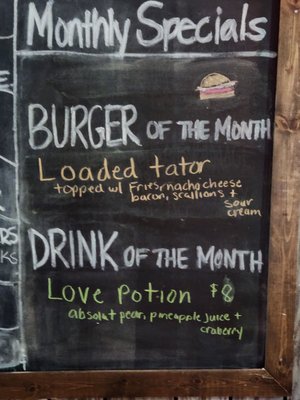 Monthly Specials
BURGER OF THE MONTH
Loaded tator
topped w/ Fries nacho cheese
bacon, scallions +
sour
cream
DRINK OF THE MONTH
Love Potion $8
absolut pear, pineapple juice +
craberry